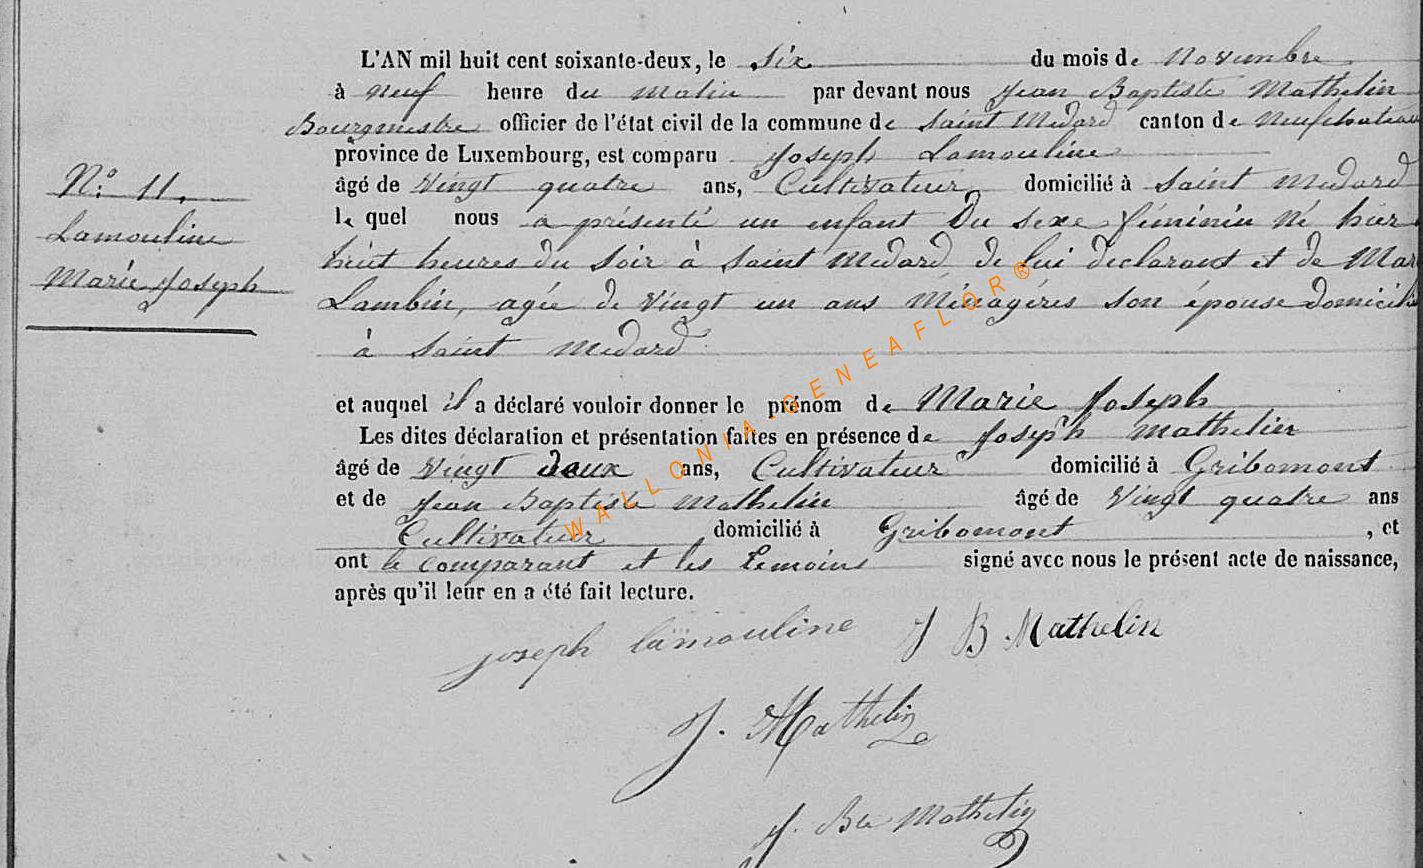 L'AN mil huit cent soixante-deux, le six du mois de Novembre
à neuf heure du matin par devant nous Jean Baptiste Mathelin
Bourgmestre officier de l'état civil de la commune de Saint Medard canton de Neufchateau
province de Luxembourg, est comparu Joseph Lamouline
N.º 11.
âgé de Vingt quatre ans, Cultivateur domicilié à Saint Medard
le quel nous a présenté un enfant Du sexe féminin Né hier
Lamouline
huit heures du soir à Saint Medard de lui declarant et de Mar
Marie Joseph
Lambin, agée de Vingt un ans Ménagéres son épouse domicili
à Saint Medard
et auquel il a déclaré vouloir donner le prénom de Marie Joseph
Les dites déclaration et présentation faites en présence de Joseph Mathelin
âgé de Vingt deux ans, Cultivateur domicilié à Gribomont
et de Jean Baptiste Mathelin âgé de Vingt quatre ans
Cultivateur domicilié à Gribomont , et
ont le comparant et les temoins signé avec nous le présent acte de naissance,
après qu'il leur en a été fait lecture.
joseph lamouline J B Mathelin
J. Mathelin
J. Bte Mathelin
WALLONIA-GENEAFLOR®